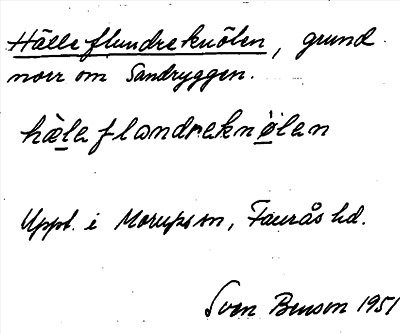 Hälleflundreknölen, grund
norr om Sandryggen.
hàleflandreknölen
Uppt. i Morups sn, Faurås hd.
Sven Benson 1951